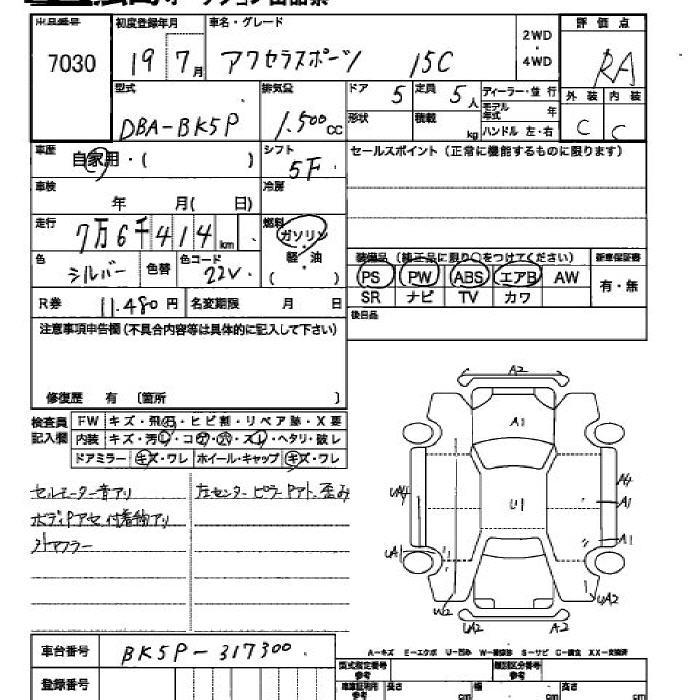 出品番号 初度登録年月 車名・グレード 2WD・4WD 評価点
7030 19 7月 アクセラスポーツ 15C RA
型式 排気量 ドア 5 定員 5人 ディーラー・並行 外装 内装
DBA-BK5P 1.500cc 形状 積載 kg モデル年式 年 C C
ハンドル 左・右
車歴 自家用・( ) シフト 5F セールスポイント(正常に機能するものに限ります)
車検 年 月( 日) 冷房
走行 7万6千414km 燃料 ガソリン・軽・油 ( )
色 シルバー 色替 色コード 22V
装備品(純正品に限り○をつけてください) 新車保証書
PS PW ABS エアB AW 有・無
SR ナビ TV カワ
R券 11.480円 名変期限 月 日 後日品
注意事項申告欄(不具合内容等は具体的に記入して下さい)
修復歴 有 〔箇所 〕
検査員記入欄 FW キズ・飛石・ヒビ割・リペア跡・X要
内装 キズ・汚レ・コゲ・穴・スレ・ヘタリ・破レ
ドアミラー キズ・ワレ ホイール・キャップ キズ・ワレ
セルモーター音アリ 左センターピラーPアト、歪み
ボディPアセ、付着物アリ
外マフラー
A2
A1
U1
UA4 A4
A1
UA1 A1
UA2
W2
UA2 A2
A-キズ E-エクボ U-凹み W-補修跡 S-サビ C-腐食 XX-交換済
車台番号 BK5P-317300
登録番号
型式指定番号 参考 類別区分番号 参考
車庫証明用 参考 長さ cm 幅 cm 高さ cm